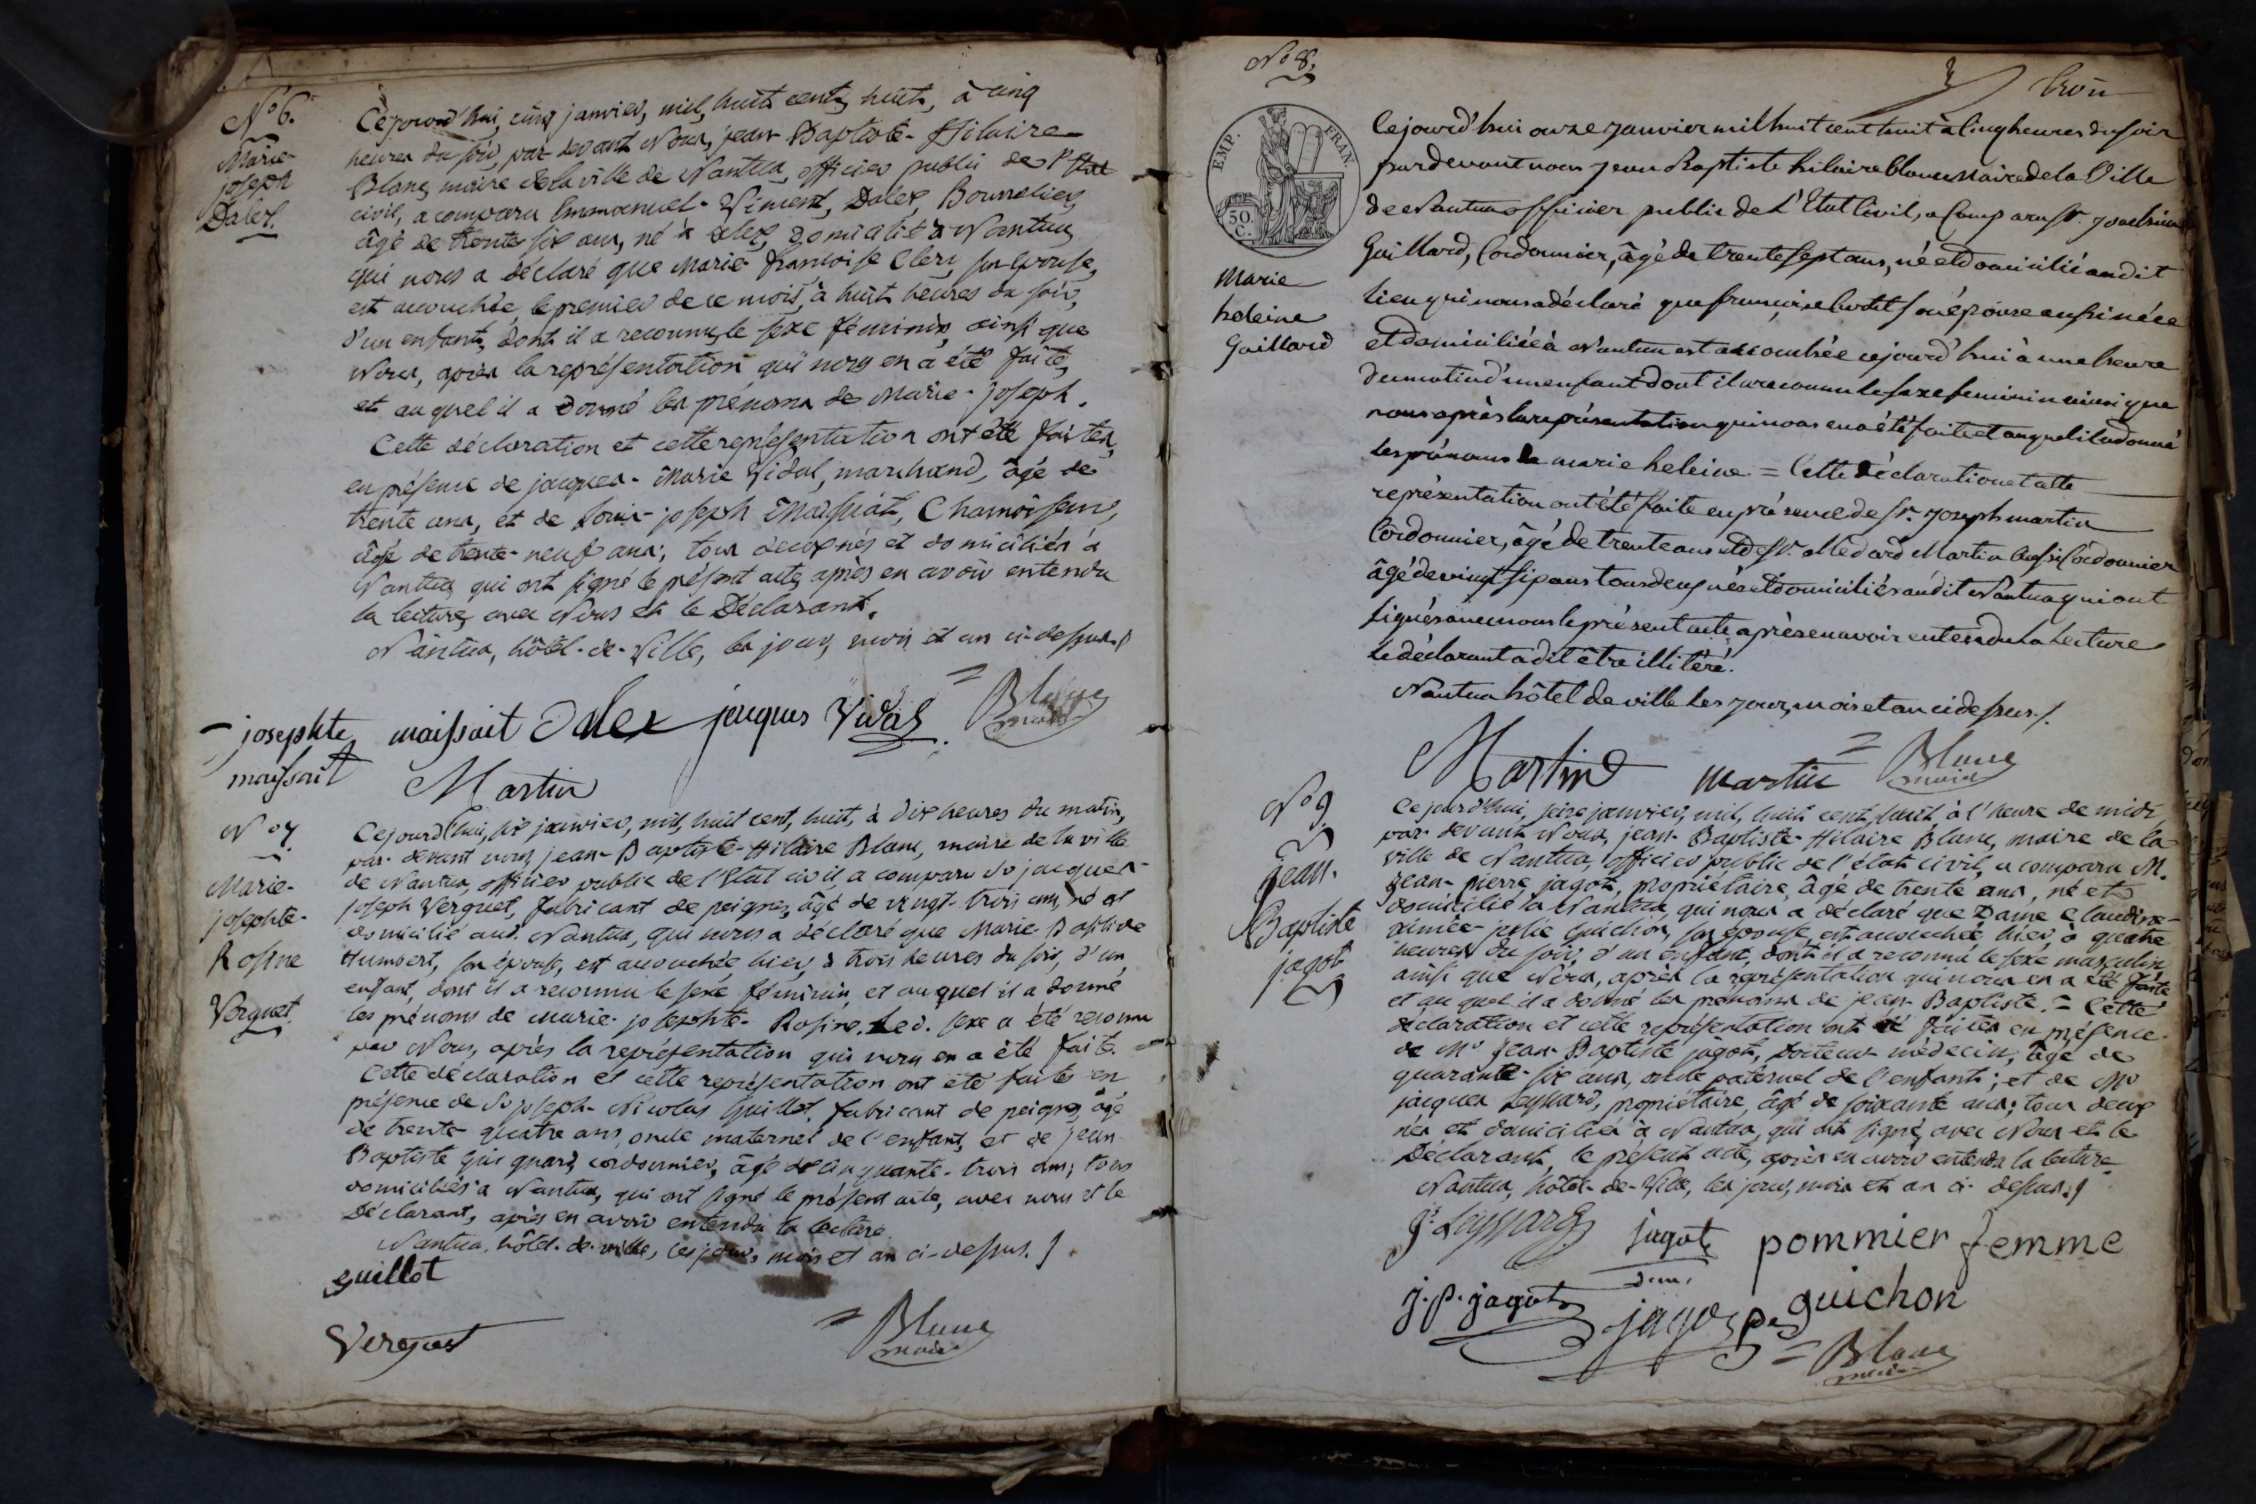 N° 6.
Marie-
joseph
Dalex.
Cejourd'hui, cinq janvier, mil, huit cent, huit, à cinq
heures du soir, par devant Nous, jean-Baptiste-Hilaire
Blanc, maire de la ville de Nantua, officier public de l'Etat
civil, a comparu Emmanuel-Viment, Dalex, Bourrelier,
âgé de trente six ans, né à domicilié à Nantua,
qui nous a déclaré que Marie françoise Clerc, son Epouse,
est accouchée, le premier de ce mois, à huit heures du soir,
d'un enfant, dont il a reconnu le sexe féminin, ainsi que
Nous, après la représentation qui nous en a été faite,
et auquel il a donné les prénoms de Marie-joseph.
Cette déclaration et cette représentation ont été faites,
en présence de jacques-Marie Vidal, marchand, âgé de
trente ans, et de Louis-joseph Maissiat, Chamoiseur,
âgé de trente-neuf ans; tous deux nés et domiciliés à
Nantua, qui ont signé le présent acte, après en avoir entendu
la lecture, avec Nous et le Déclarant.
Nantua, hôtel-de-Ville, les jour, mois et an ci-dessus./
josephte maissait Dalex jacques Vidal = Blanc
maire
maissait
Martin
N° 7
Marie-
josephte-
Rosine
Verguet.
Cejourd'hui, six janvier, mil, huit cent, huit, à dix heures du matin,
par-devant nous, jean-Baptiste-Hilaire Blanc, maire de la ville
de Nantua, officier public de l'Etat civil, a comparu Sr jacques-
joseph Verguet, fabricant de peignes, âgé de vingt-trois ans, né et
domicilié aud. Nantua, qui nous a déclaré que Marie
Humbert, son épouse, est accouchée, hier, à trois heures du soir, d'un
enfant, dont il a reconnu le sexe féminin, et auquel il a donné
les prénoms de Marie-josephte-Rosine. Led. sexe a été reconnu
par Nous, après la représentation qui nous en a été faite.
Cette déclaration et cette représentation ont été faites en
présence de Sr joseph-Nicolas Guillot, fabricant de peignes, âgé
de trente-quatre ans, oncle maternel de l'enfant, et de jean-
Baptiste Guinard, cordonnier, âgé de cinquante-trois ans; tous
domiciliés à Nantua, qui ont signé le présent acte, avec nous et le
Déclarant, après en avoir entendu la lecture.
Nantua, hôtel-de-ville, les jour, mois et an ci-dessus. /
guillot
Verguet = Blanc
maire
N° 8.
3 trois
EMP. FRAN.
50.
C.
Marie
heleine
Gaillard
Cejourd'hui onze janvier mil huit cent huit à Cinq heures du soir
pardevant nous jean Baptiste hilaire blanc Maire de la Ville
de Nantua officier public de L'Etat Civil, a Comparu Sr. joachim
Gaillard, Cordonnier, âgé de trente sept ans, né et domicilié audit
lieu qui nous a déclaré que françoise son épouse aussi née
et domiciliée à Nantua est accouchée cejourd'hui à une heure
du matin d'un enfant dont il a reconnu le sexe feminin ainsi que
nous après la représentation qui nous en a été faite et auquel il a donné
les prénoms de marie heleine = Cette déclaration et cette
représentation ont été faite en présence de Sr. joseph martin
Cordonnier, âgé de trente ans et de Sr. Medard Martin aussi Cordonnier
âgé de vingt six ans tous deux nés et domiciliés audit Nantua qui ont
signés avec nous le présent acte, après en avoir entendu la Lecture
le déclarant a dit être illitéré.
Nantua hôtel de ville les jour, mois et an ci dessus./.
Martin martin = Blanc
maire
N° 9
jean-
Baptiste
jagot
Cejourd'hui, seize janvier, mil, huit cent, huit, à l'heure de midi,
par-devant Nous, jean-Baptiste-Hilaire Blanc, maire de la
ville de Nantua, officier public de l'état civil, a comparu M.
jean-pierre jagot, propriétaire, âgé de trente ans, né et
domicilié à Nantua, qui nous a déclaré que Dame Claudine-
aimée-josèphe Guichon, son Epouse, est accouchée hier, à quatre
heures du soir, d'un enfant, dont il a reconnu le sexe masculin,
ainsi que Nous, après la représentation qui nous en a été faite
et auquel il a donné les prénoms de jean-Baptiste. = Cette
déclaration et cette représentation ont été faites en présence
de Mr jean-Baptiste jagot, Docteur médecin, âgé de
quarante-six ans, oncle paternel de l'enfant; et de Mr
jacques Leyssard, propriétaire, âgé de soixante ans; tous deux
nés et domiciliés à Nantua, qui ont signé, avec Nous et le
Déclarant, le présent acte, après en avoir entendu la lecture.
Nantua, hôtel-de-Ville, les jour, mois et an ci-dessus./
Js. Leyssard jagot pommier femme
d.m.
j.p. jagot jagot guichon
= Blanc
maire